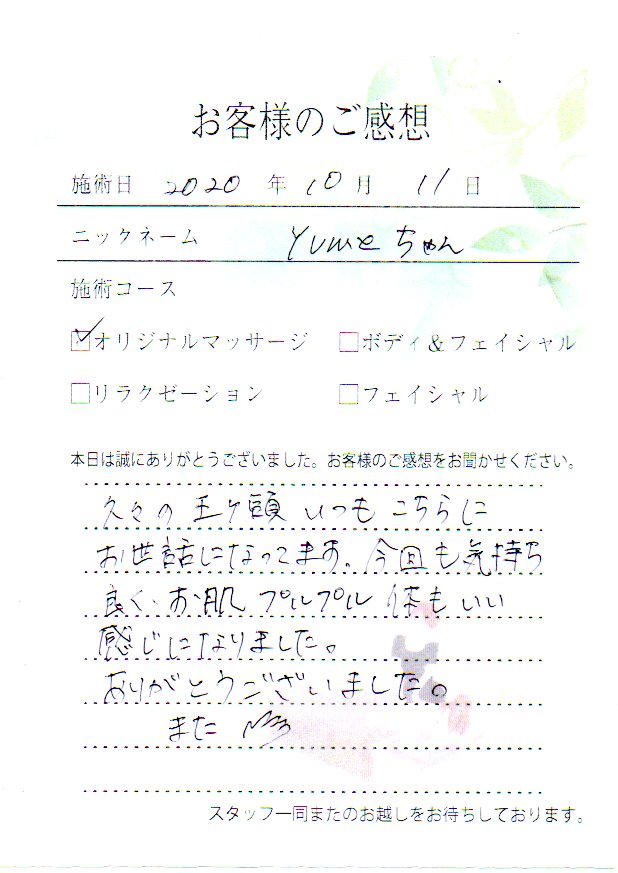 お客様のご感想
施術日 2020 年 10 月 11 日
ニックネーム Yumeちゃん
施術コース
オリジナルマッサージ ボディ&フェイシャル
リラクゼーション フェイシャル
本日は誠にありがとうございました。お客様のご感想をお聞かせください。
久々の 五ケ頭 いつも こちらに
お世話になってます。今回も気持ち
良く、お肌 プルプル 体も いい
感じになりました。
ありがとうございました。
また
スタッフ一同またのお越しをお待ちしております。